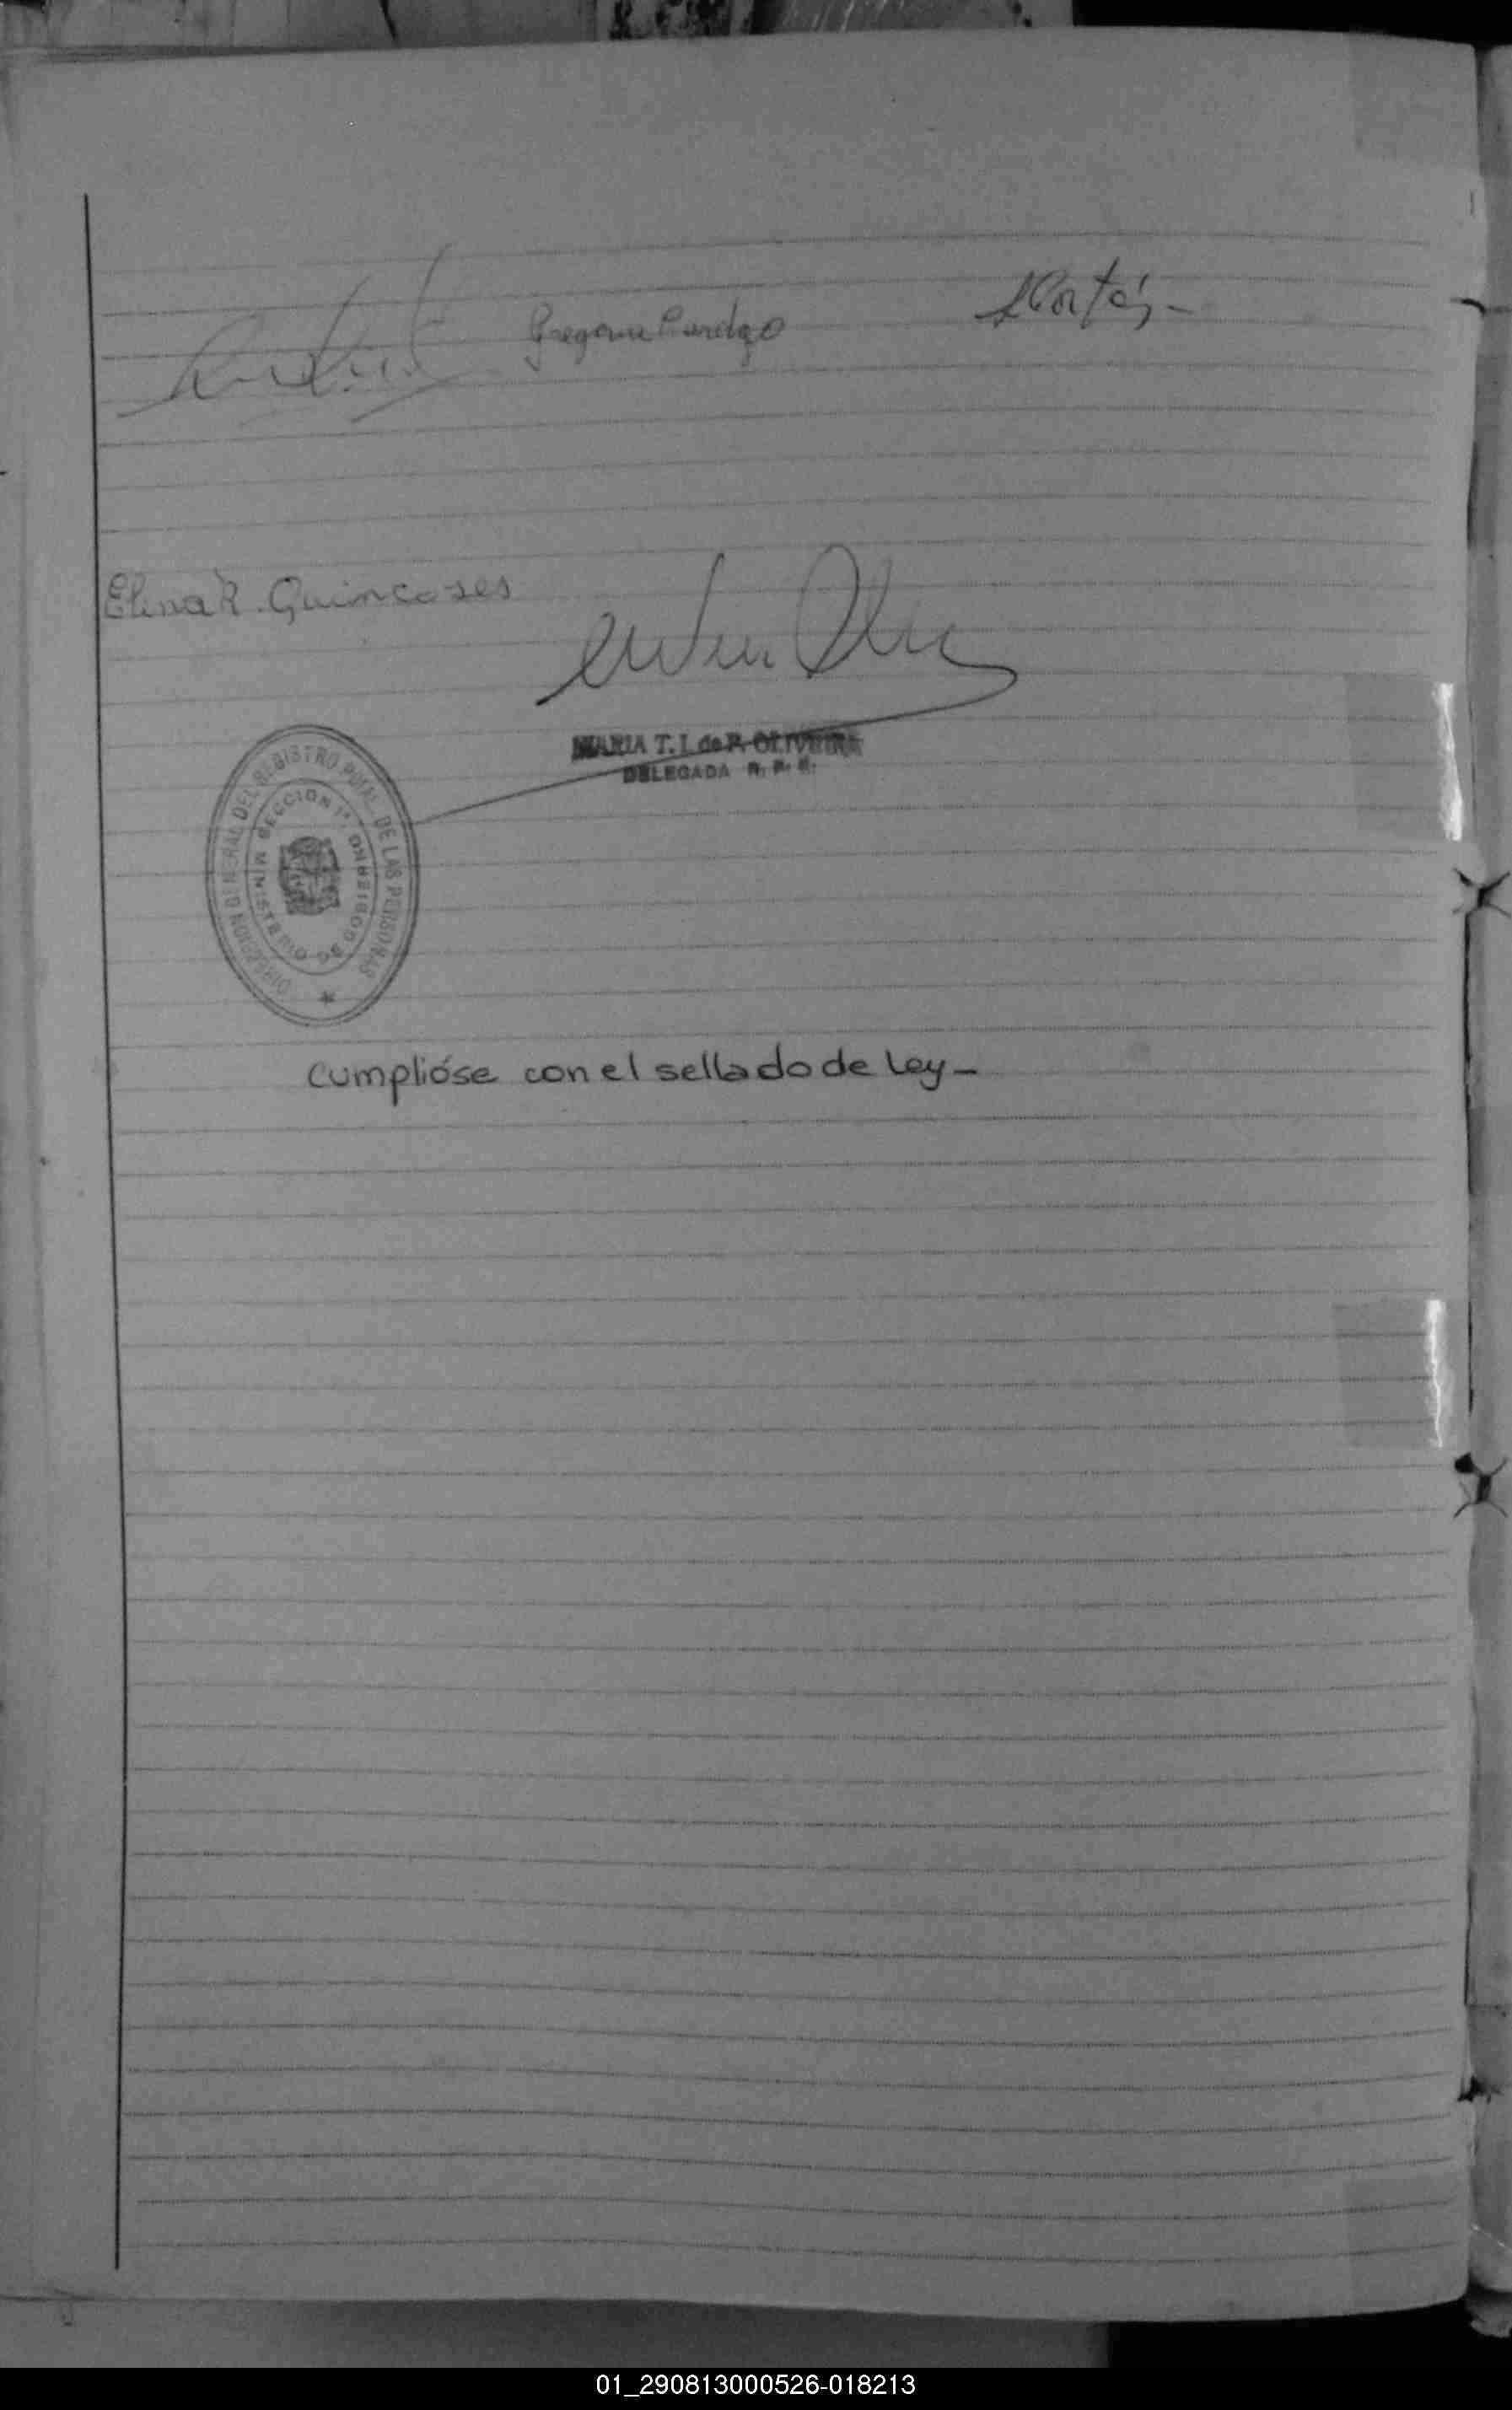 Cortés -
Elina R. Quincoses
MARIA T. I. de P. OLIVEIRA
DELEGADA R. P. E.
DIRECCION GENERAL DEL REGISTRO PCIAL. DE LAS PERSONAS
MINISTERIO DE GOBIERNO SECCION 1ª
cumplióse con el sellado de Ley -
01_290813000526-018213